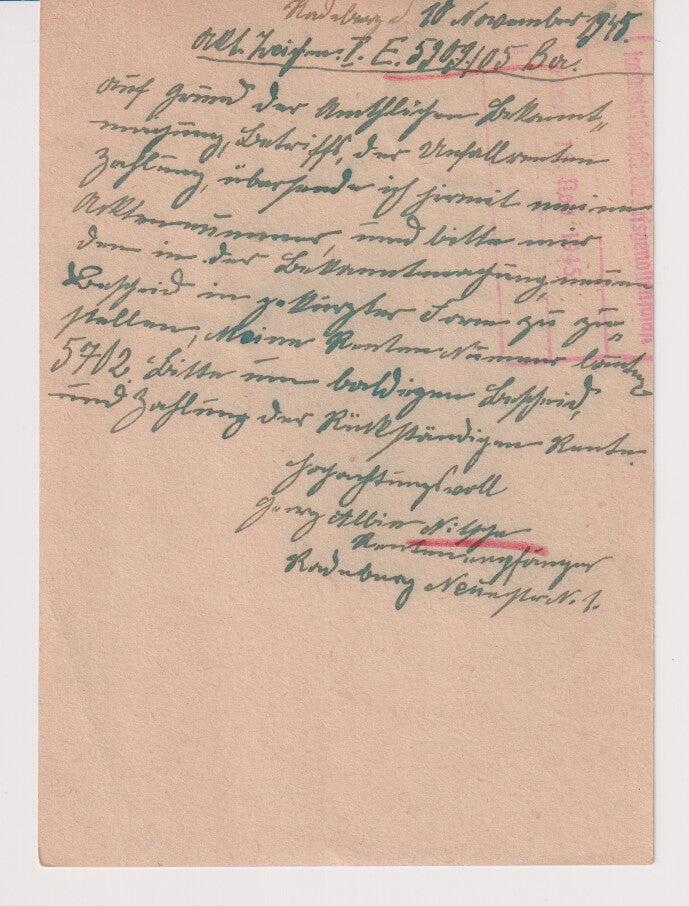 Radeburg d. 18 November 1945.
Akt. Zeichen: I. E. 5909/05 Ba.
Auf Grund der Amthlichen Bekannt„
machung, Betriffs, der Unfallrenten
Zahlung, übersende ich hirmit meine
Acktennummer, und bitte mir
den in der Bekanntmachung, neuen
Bescheid in gekürzter Form zu zu„
stellen, Meine Renten Nummer lautet
5702. Bitte um baldigen Bescheid,
und Zahlung der Rückständigen Rente.
Hochachtungsvoll
Georg Albin Nitzsche
Rentenempfänger
Radeburg Neuestr N. 1.